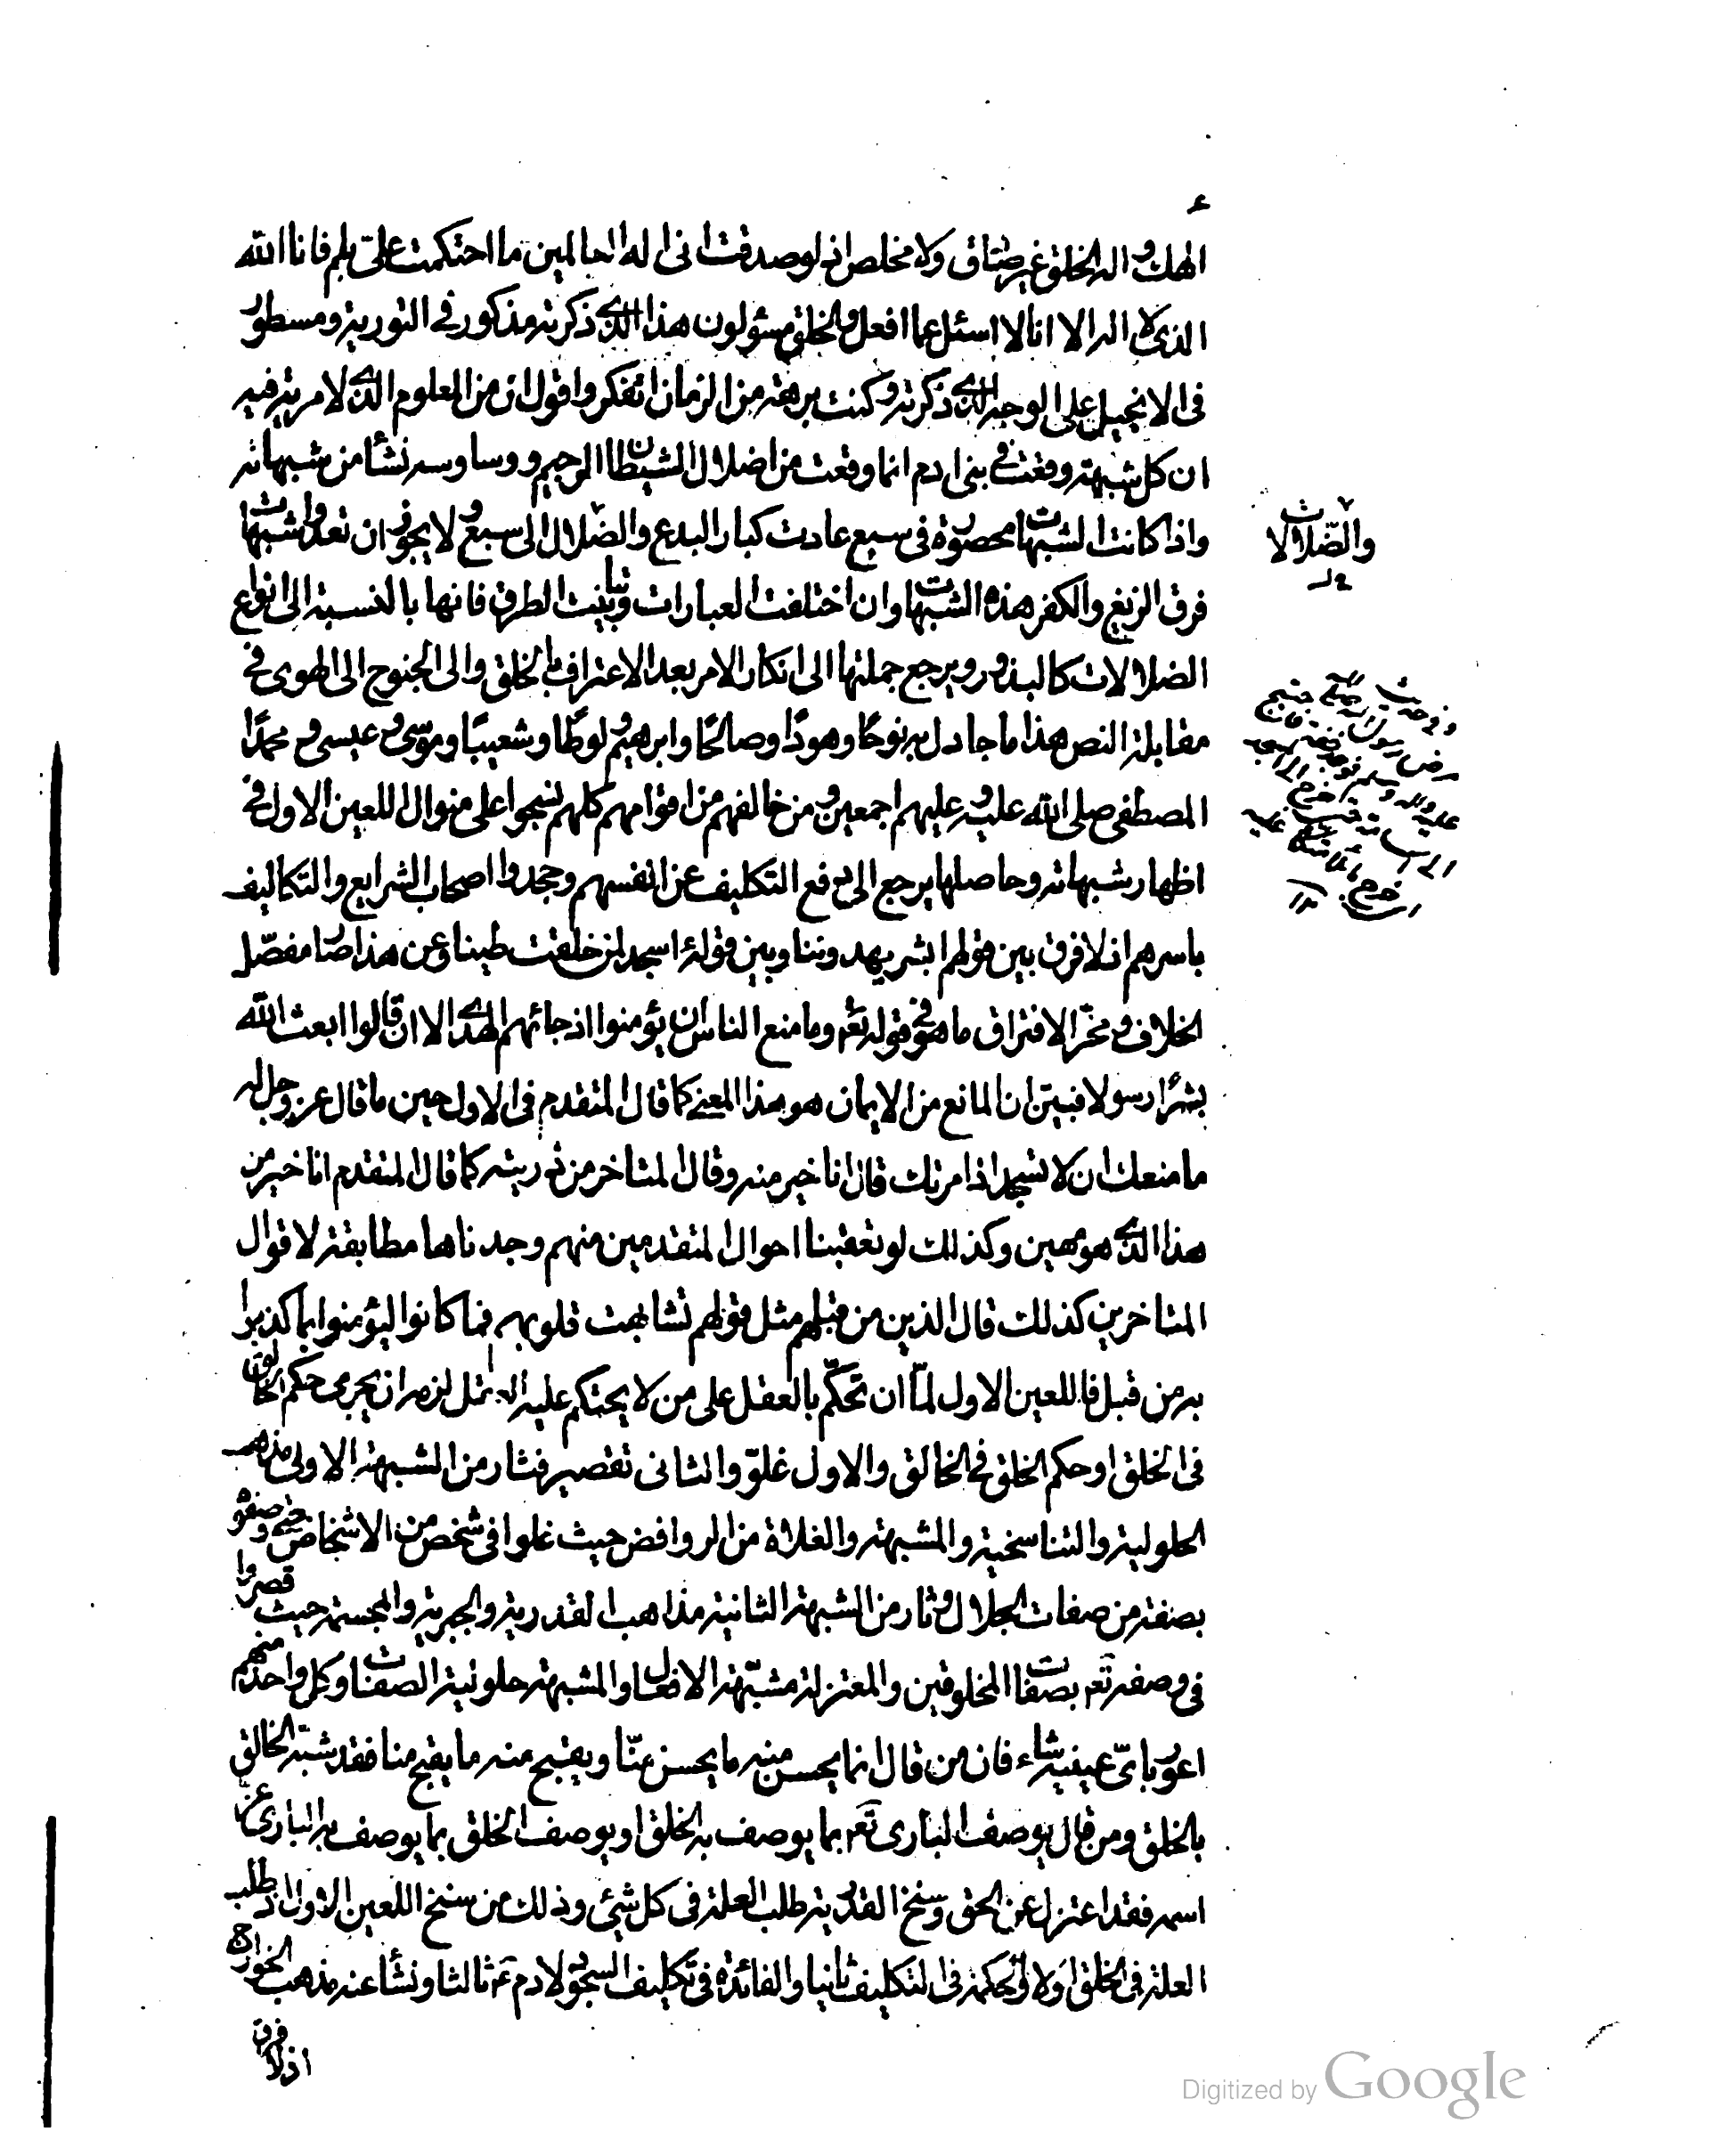 الهك واله الخلق غير صادق ولا مخلص اذ لو صدقت انى اله العالمين ما احتكمت على بلم فانا الله
الذى لا اله الا انا لا اسئل عما افعل والخلق مسؤلون هذا الذى ذكرته مذكور فى التورية ومسطور
فى الانجيل على الوجه الذى ذكرته وكنت برهة من الزمان اتفكر واقول ان من المعلوم الذى لا مرية فيه
ان كل شبهة وقعت فى بنى ادم انما وقعت من اضلال الشيطان الرجيم ووساوسه نشأ من شبهاته
واذا كانت الشبهات محصورة فى سبع عادت كبار البدع والضلال الى سبع ولا يجوز ان تعدوا شبهات
فرق الزيغ والكفر هذه الشبهات وان اختلفت العبارات وتباينت الطرق فانها بالنسبة الى انواع
الضلالات كالبذور ويرجع جملتها الى انكار الامر بعد الاعتراف بالخلق والى الجنوح الى الهوى فى
مقابلة النص هذا ما جادل به نوحًا وهودًا وصالحًا وابرهيم ولوطًا وشعيبًا وموسى وعيسى ومحمدًا
المصطفى صلى الله عليه وعليهم اجمعين ومن خالفهم من اقوامهم كلهم نسجوا على منوال اللعين الاول فى
اظهار شبهاته وحاصلها يرجع الى دفع التكليف عن انفسهم وجحدوا اصحاب الشرايع والتكاليف
باسرهم اذ لا فرق بين قولهم ابشر يهدوننا وبين قوله اسجد لمن خلقت طينا وعن هذا صار مفصّل
الخلاف ومحزّ الافتراق ما هو فى قوله تعم وما منع الناس ان يؤمنوا اذ جائهم الهدى الا ان قالوا ابعث الله
بشرًا رسولا فبين ان المانع من الايمان هو هذا المعنى كما قال المتقدم فى الاول حين ما قال عز وجل له
ما منعك ان لا تسجد اذ امرتك قال انا خير منه وقال المتاخر من ذريته كما قال المتقدم انا خير من
هذا الذى هو مهين وكذلك لو تعقبنا احوال المتقدمين منهم وجدناها مطابقة لاقوال
المتاخرين كذلك قال الذين من قبلهم مثل قولهم تشابهت قلوبهم فما كانوا ليؤمنوا بما كذبوا
به من قبل فاللعين الاول لمّا ان تحكّم بالعقل على من لا يحتكم عليه العقل لزمه ان يجرى حكم الخالق
فى الخلق او حكم الخلق فى الخالق والاول غلوّ والثانى تقصير فثار من الشبهة الاولى مذهب
الحلولية والتناسخية والمشبهة والغلاة من الروافض حيث غلوا فى شخص من الاشخاص حتى وصفوه
بصفة من صفات الجلال وثار من الشبهة الثانية مذاهب القدرية والجبرية والمجسمة حيث قصروا
فى وصفه تعم بصفات المخلوقين والمعتزلة مشبّهة الافعال والمشبهة حلولية الصفات وكل واحد منهم
اعور باىّ عينيه شاء فان من قال انما يحسن منه ما يحسن منّا ويقبح منه ما يقبح منا فقد شبّه الخالق
بالخلق ومن قال يوصف البارى تعم بما يوصف به الخلق او يوصف الخلق بما يوصف به البارى عز
اسمه فقد اعتزل عن الحق وسنخ القدرية طلب العلة فى كل شئ وذلك من سنخ اللعين الاول اذ طلب
العلة فى الخلق اولا والحكمة فى التكليف ثانيا والفائدة فى تكليف السجود لادم عم ثالثا ونشأ عنه مذهب الخوارج
اذ لا فرق
والضلالات
Digitized by Google